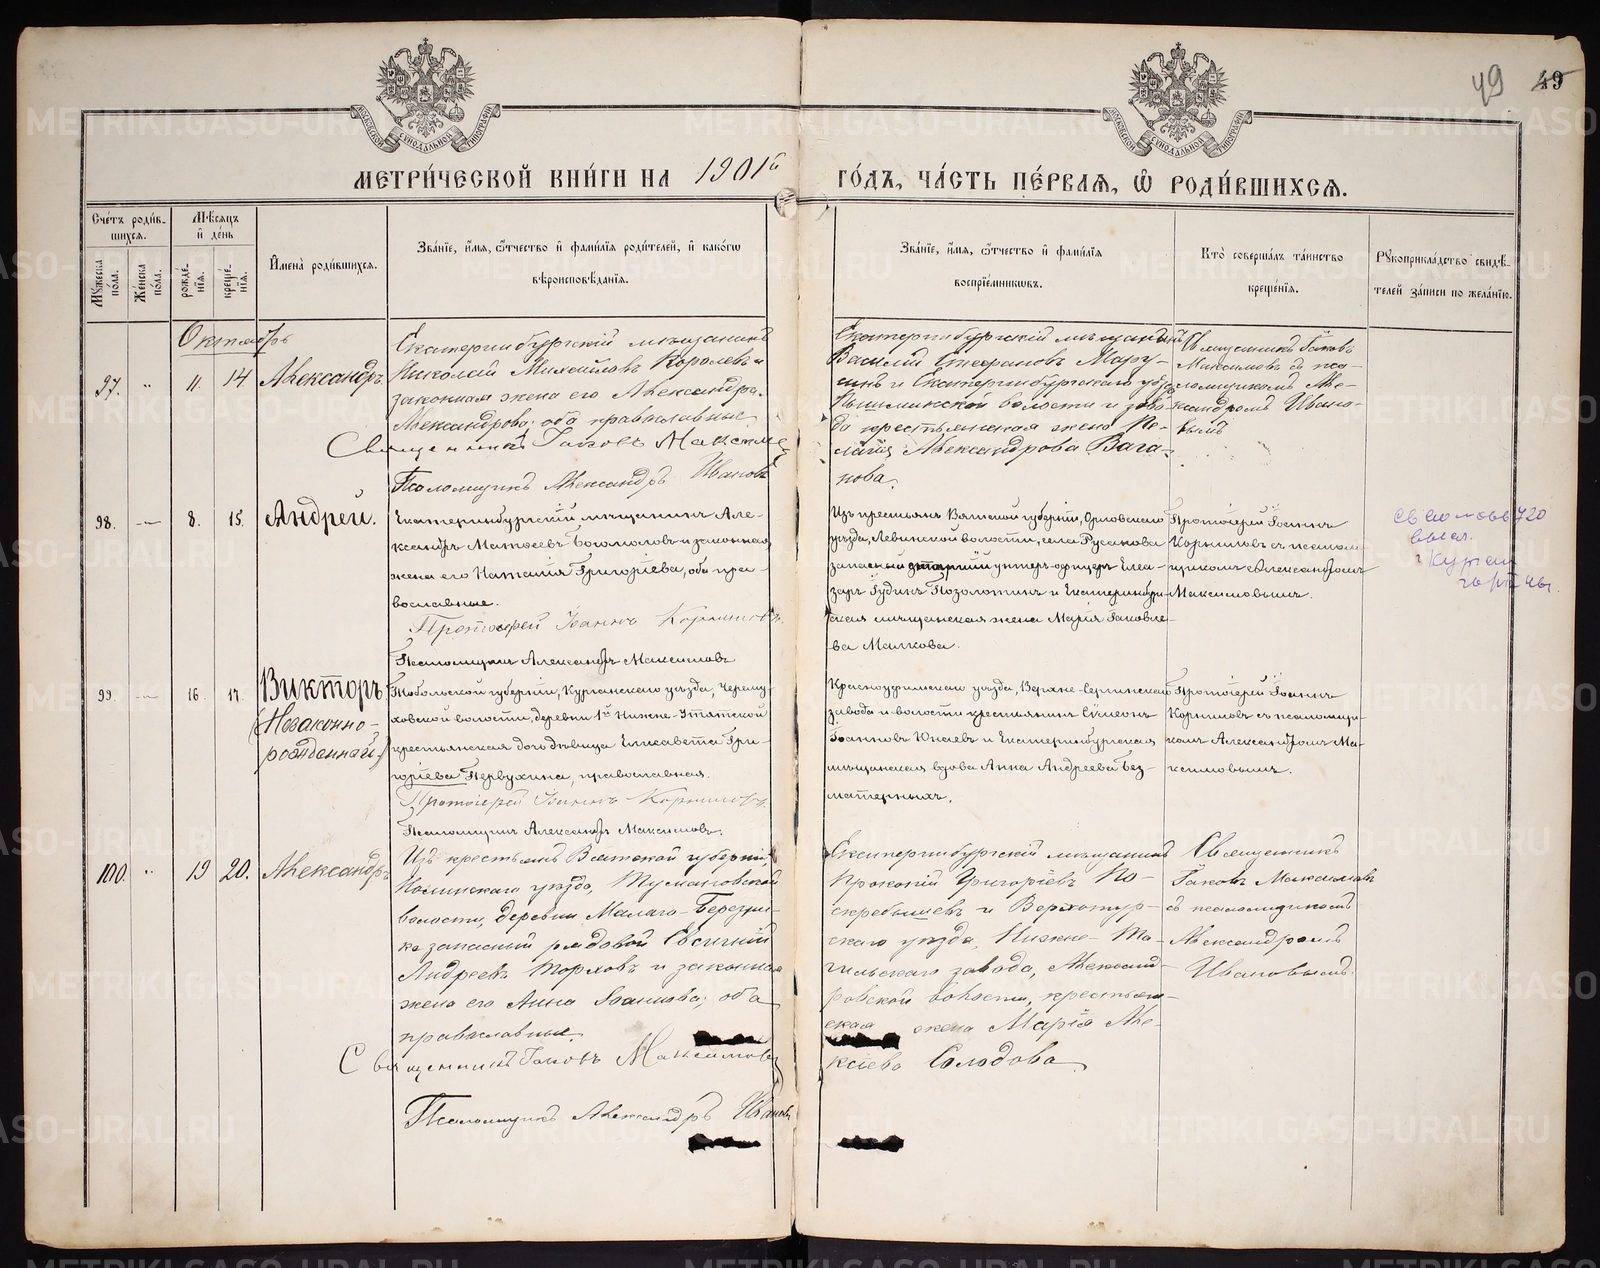 49 49
МЕТРИ́ЧЕСКОЙ КНИ́ГИ НА 1901й ГО́ДЪ, ЧА́СТЬ ПЕ́РВАѦ, Ѡ҆ РОДИ́ВШИХСѦ.
Сче́тъ роди́в-
шихсѧ.
Мꙋ́жеска по́ла.
Же́нска по́ла.
Мѣ́сѧцъ
и҆ де́нь
рожде́-
нїѧ.
креще́-
нїѧ.
И҆мена̀ роди́вшихсѧ.
Зва́нїе, и҆́мѧ, ѻ҆́тчество и҆ фами́лїѧ роди́телей, и҆ како́гѡ
вѣроисповѣ́данїѧ.
Зва́нїе, и҆́мѧ, ѻ҆́тчество и҆ фами́лїѧ
воспрїе́мникѡвъ.
Кто̀ соверша́лъ та́инство
креще́нїѧ.
Рꙋкоприкла́дство свидѣ́-
телей за́писи по жела́нїю.
Октябрь
97. " 11. 14 Александръ
Екатеринбургскій мѣщанинъ
Николай Михайловъ Королевъ и
законная жена его Александра
Александрова; оба православные.
Священникъ Іаковъ Максимовъ
Псаломщикъ Александръ Ивановъ
Екатеринбургскій мѣщанинъ
Василій Стефановъ Мару-
синъ и Екатеринбургскаго уѣзда
Пышминской волости и заво-
да крестьянская жена Пе-
лагія Александрова Вага-
нова.
Священникъ Іаковъ
Максимовъ съ пса-
ломщикомъ Але-
ксандромъ Ивано-
вымъ
98. — 8. 15. Андрей.
Екатеринбургскій мѣщанинъ Але-
ксандръ Матѳеевъ Богомоловъ и законная
жена его Наталія Григоріева, оба пра-
вославные.
Протоіерей Іоаннъ Корниловъ
Псаломщикъ Александръ Максимовъ
Изъ крестьянъ Вятской губерніи, Орловскаго
уѣзда, Левинской волости, села Русанова
запасный старшій унтеръ-офицеръ Елеа-
заръ Гудинъ Позолотинъ и Екатеринбург-
ская мѣщанская жена Марія Іаковле-
ва Малкова.
Протоіерей Іоаннъ
Корниловъ съ псалом-
щикомъ Александромъ
Максимовымъ.
99. — 16. 17. Викторъ
(Незаконно-
рожденный)
Тобольской губерніи, Курганскаго уѣзда, Черему-
ховской волости, деревни 1й Нижне-Утятской
крестьянская дочь дѣвица Елисавета Гри-
горіева Первухина, православная.
Протоіерей Іоаннъ Корниловъ
Псаломщикъ Александръ Максимовъ.
Красноуфимскаго уѣзда, Верхне-Сергинскаго
завода и волости крестьянинъ Сѵмеонъ
Іоанновъ Юнаевъ и Екатеринбургская
мѣщанская вдова Анна Андреева Без-
матерныхъ.
Протоіерей Іоаннъ
Корниловъ съ псаломщи-
комъ Александромъ Ма-
ксимовымъ.
100. " 19 20. Александръ
Изъ крестьянъ Вятской губерніи,
Нолинскаго уѣзда, Тумановской
волости, деревни Малаго-Березни-
ка запасный рядовой Евсигній
Андреевъ Торховъ и законная
жена его Анна Іоаннова; оба
православные.
Священникъ Іаковъ Максимовъ
Псаломщикъ Александръ Ивановъ
Екатеринбургскій мѣщанинъ
Прокопій Григоріевъ По-
скребышевъ и Верхотур-
скаго уѣзда, Нижне-Та-
гильскаго завода, Александ-
ровской волости, крестьян-
ская жена Марія Але-
ксіева Солодова.
Священникъ
Іаковъ Максимовъ
съ псаломщикомъ
Александромъ
Ивановымъ